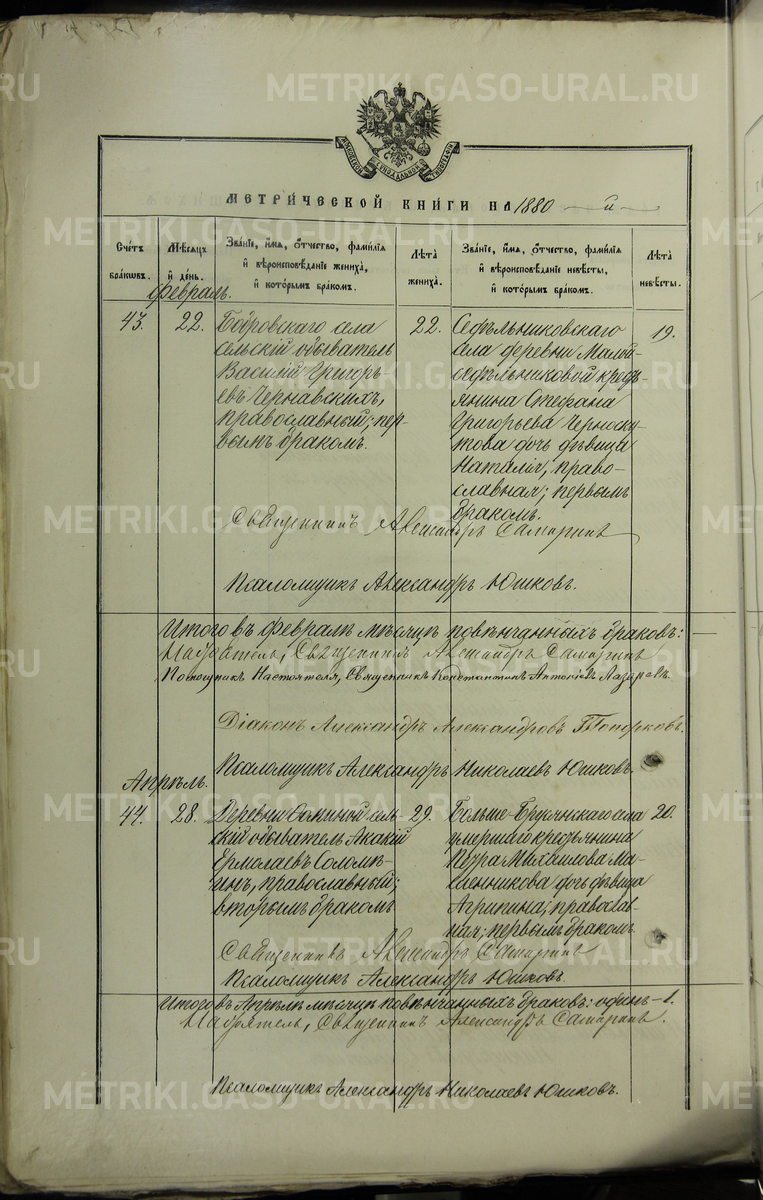 METRIKI.GASO-URAL.RU
МОСКОВСКОЙ СѴНОДАЛЬНОЙ ТИПОГРАФІИ
МЕТРИ́ЧЕСКОЙ КНИ́ГИ НА 1880 й
Сче́тъ бра́ковъ.
Мѣ́сяцъ и҆ де́нь.
Зва́нїе, и҆́мя, ѻ҆́тчество, фами́лїя и҆ вѣроисповѣ́данїе жениха̀, и҆ кото́рымъ бра́комъ.
Лѣ́та жениха̀.
Зва́нїе, и҆́мя, ѻ҆́тчество, фами́лїя и҆ вѣроисповѣ́данїе невѣ́сты, и҆ кото́рымъ бра́комъ.
Лѣ́та невѣ́сты.
Февраль.
43.
22.
Бобровскаго села
сельскій обыватель
Василій Григорь-
евъ Чернавскихъ,
православный; пер-
вымъ бракомъ.
22.
Седѣльниковскаго
села деревни Малой
Седѣльниковой кресть-
янина Стефана
Григорьева Черноску-
това дочь дѣвица
Наталія, право-
славная; первымъ
бракомъ.
19.
Священникъ Александръ Самаринъ
Псаломщикъ Александръ Юшковъ.
Итого въ Февралѣ мѣсяцѣ повѣнчанныхъ браковъ: —
Настоятель, Священникъ Александръ Самаринъ
Помощникъ Настоятеля, Священникъ Константинъ Антоніевъ Лазаревъ.
Діаконъ Александръ Александровъ Топорковъ.
Псаломщикъ Александръ Николаевъ Юшковъ.
Апрѣль.
44.
28.
Деревни Фоминой сель-
скій обыватель Акакій
Ермолаевъ Соломѣ-
инъ, православный;
вторымъ бракомъ
29.
Больше-Брусянскаго села
умершаго крестьянина
Петра Михаилова Ма-
сленникова дочь дѣвица
Агрипина, православ-
ная; первымъ бракомъ.
20.
Священникъ Александръ Самаринъ
Псаломщикъ Александръ Юшковъ.
Итого въ Апрѣлѣ мѣсяцѣ повѣнчанныхъ браковъ: одинъ – 1.
Настоятель, Священникъ Александръ Самаринъ.
Псаломщикъ Александръ Николаевъ Юшковъ.